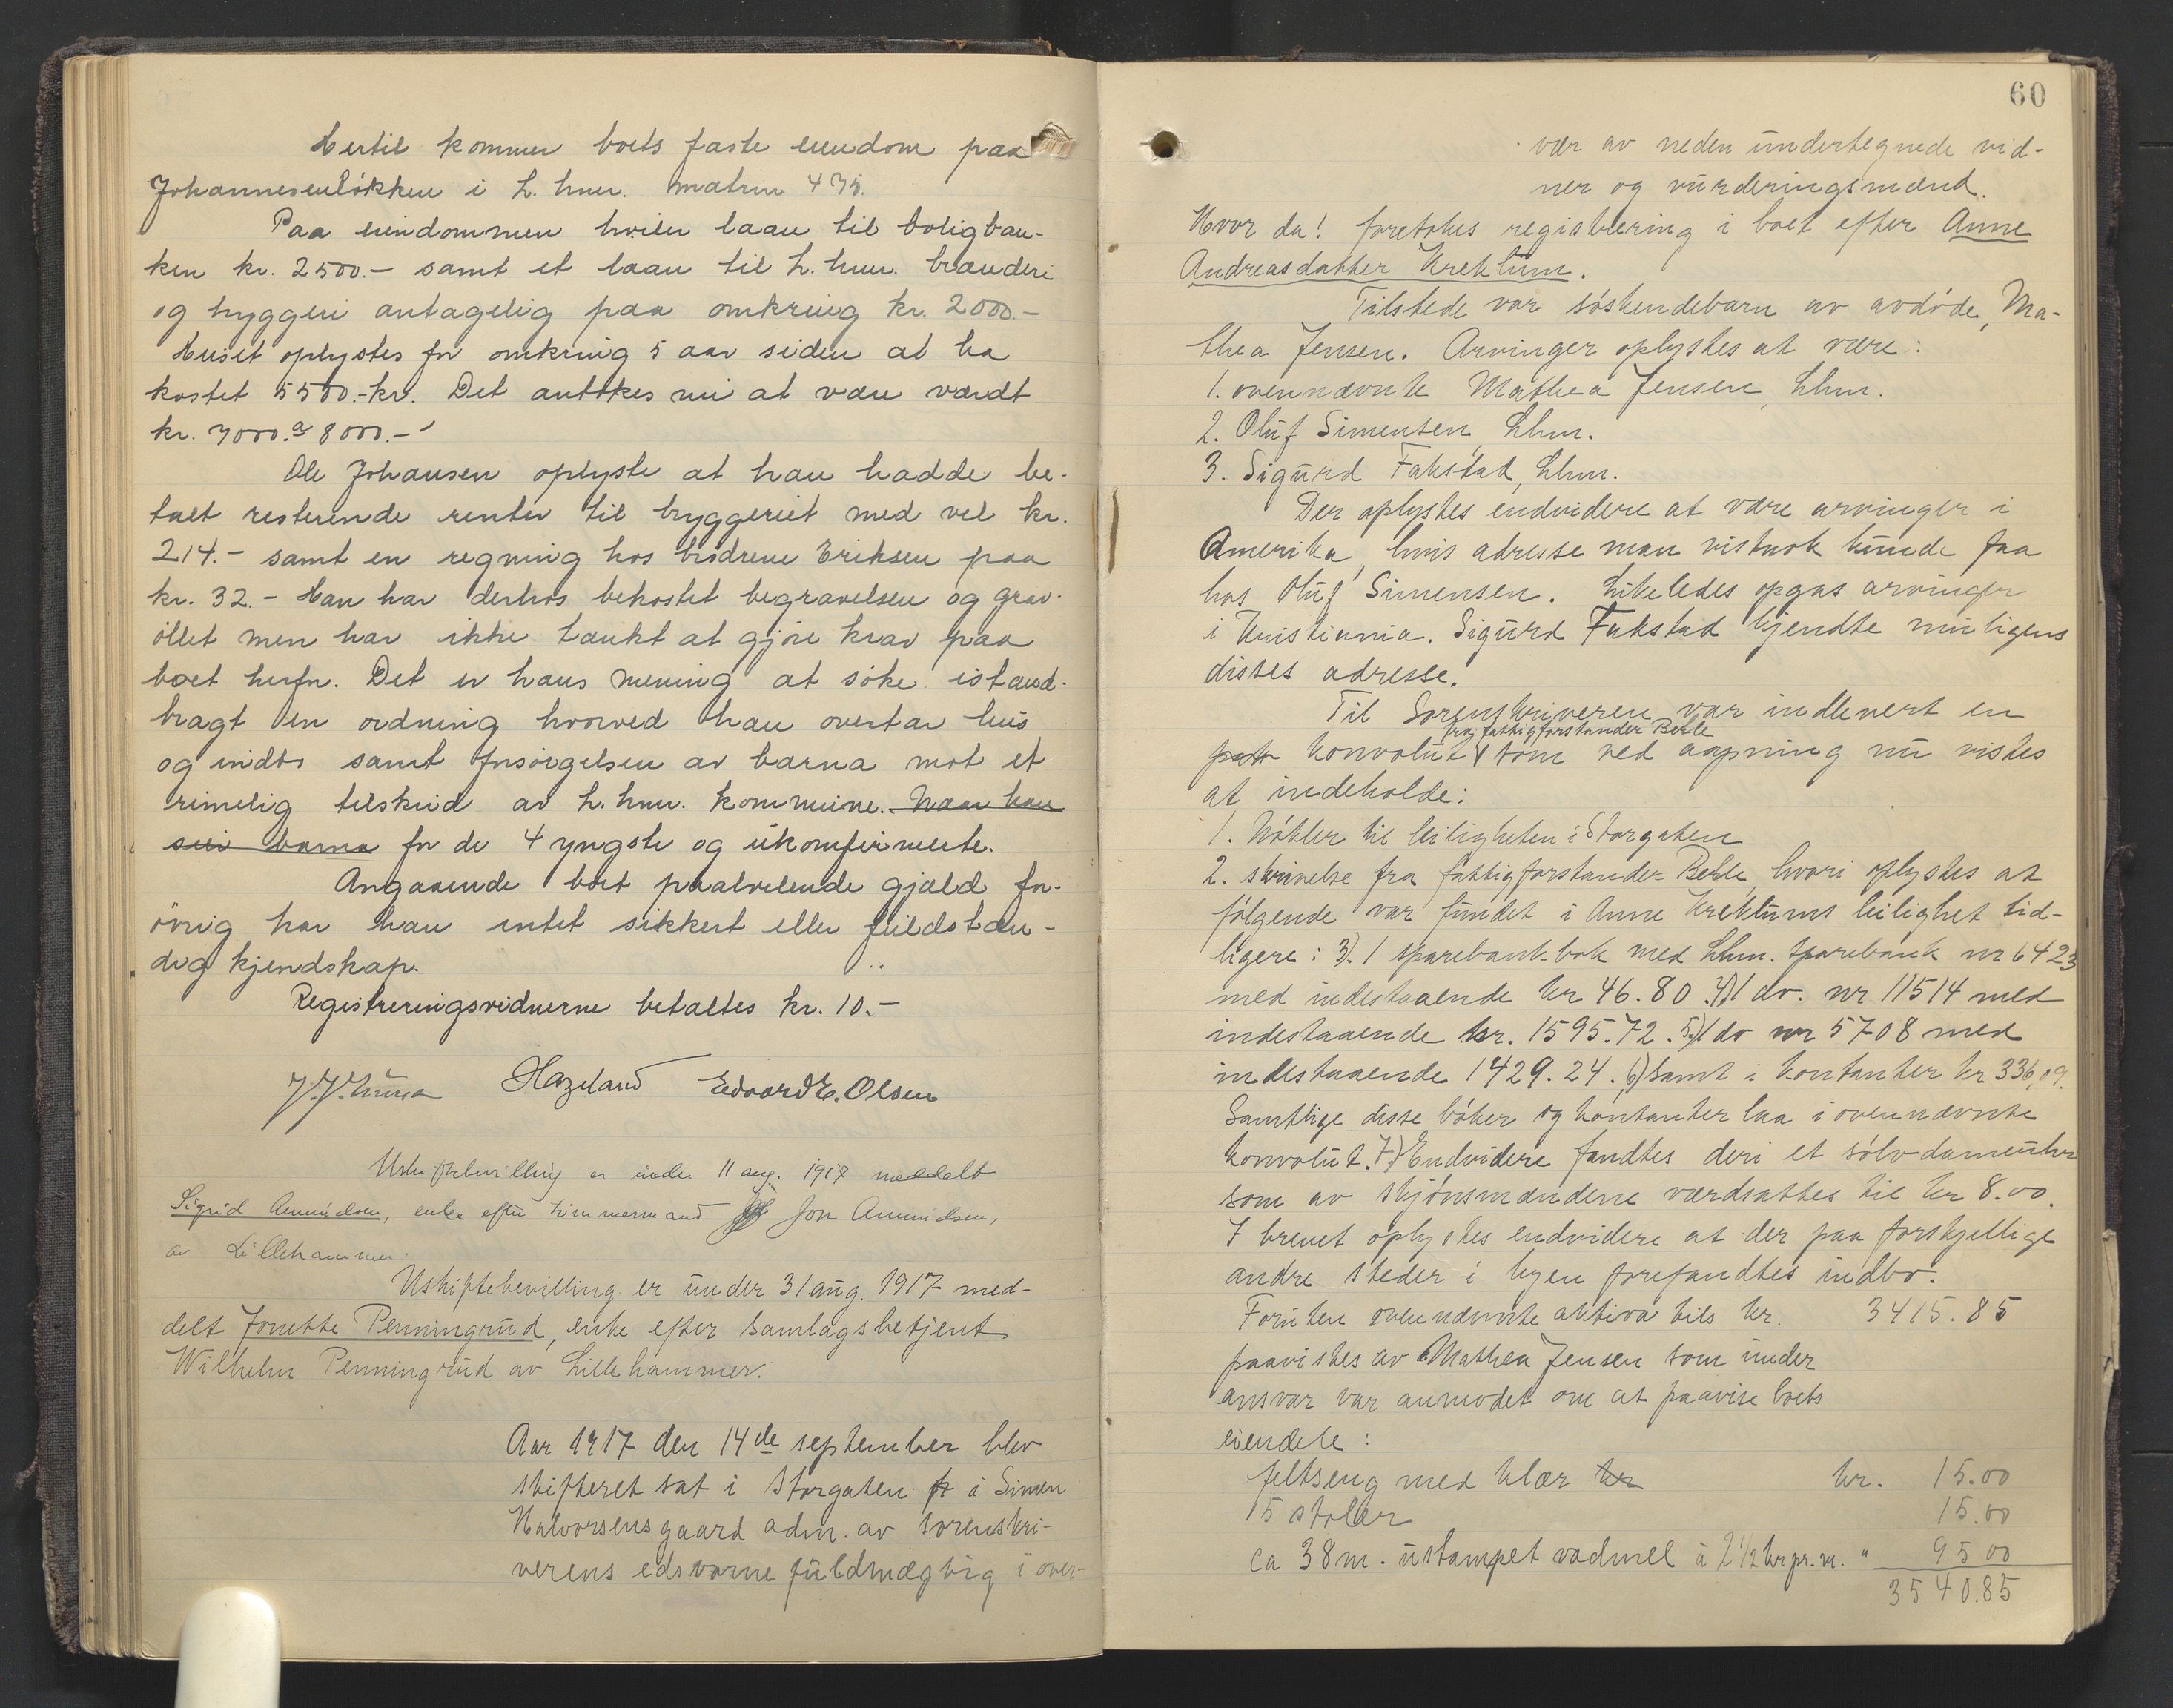 Hertil kommer boets faste eiendom paa
Johannesenløkken i L.hmr. matrnr 475.
Paa eiendommen hviler laan til boligban-
ken kr. 2500.- samt et laan til L.hmr. brænderi
og bryggeri antagelig paa omkring kr. 2000.-
Huset oplystes for omkring 5 aar siden at ha
kostet 5500.-kr. Det antokes nu at være værdt
kr. 7000. a 8000.-
Ole Johansen oplyste at han hadde be-
talt resterende renter til bryggeriet med vel kr.
214.- samt en regning hos brødrene Eriksen paa
kr. 32.- Han har derhos bekostet begravelsen og grav-
øllet men har ikke tænkt at gjøre krav paa
boet herfor. Det er hans mening at søke istand-
bragt en ordning hvorved han overtar hus
og indbo samt forsørgelsen av barna mot et
rimelig tilskud av L.hmr. kommune. Naar han
sier barna for de 4 yngste og ukonfirmerte.
Angaaende boet paahvilende gjæld for-
øvrig har han intet sikkert eller fuldstæn-
dig kjendskap.
Registreringsvidnerne betaltes kr. 10.-
Hazeland Edvard E. Olsen
Uskiftebevilling er under 11 aug. 1917 meddelt
Sigrid Amundsen, enke efter tømmermand Jon Amundsen,
av Lillehammer.
Uskiftebevilling er under 31 aug. 1917 med-
delt Jonette Penningrud, enke efter Samlagsbetjent
Wilhelm Penningrud av Lillehammer.
Aar 1917 den 14de september blev
skifteret sat i Storgaten i Simen
Halvorsensgaard adm. av sorenskri-
verens edsvorne fuldmægtig i over-
60
vær av neden undertegnede vid-
ner og vurderingsmænd.
Hvor da! foretokes registrering i boet efter Anne
Andreasdatter Krektum.
Tilstede var søskendebarn av avdøde, Ma-
thea Jensen. Arvinger oplystes at være:
1. ovennævnte Mathea Jensen, Lhmr.
2. Oluf Simensen, Lhmr.
3. Sigurd Fakstad, Lhmr.
Der oplystes endvidere at være arvinger i
Amerika, hvis adresse man vistnok kunde faa
hos Oluf Simensen. Likeledes opgas arvinger
i Kristiania. Sigurd Fakstad kjendte muligens
disses adresse.
Til Sorenskriveren var indlevert en
fra fattigforstander Berle
konvolut som ved aapning nu vistes
at indeholde:
1. Nøkler til leiligheten i Storgaten
2. skrivelse fra fattigforstander Berle, hvori oplystes at
følgende var fundet i Anne Krektums leilighet tid-
ligere: 3). 1 sparebankbok med Lhmr. Sparebank nr 6423
med indestaaende kr 46.80. 4) 1 do. nr 11514 med
indestaaende kr. 1595.72. 5) 1 do nr 5708 med
indestaaende 1429.24. 6) Samt i kontanter kr 336,09.
Samtlige disse bøker og kontanter laa i ovennævnte
konvolut. 7) Endvidere fandtes deri et sølv-dameuhr
som av skjønsmændene værdsattes til kr 8.00.
I brevet oplystes endvidere at der paa forskjellige
andre steder i byen forefandtes indbo.
Foruten ovennævnte aktiva tils kr. 3415.85
paavistes av Mathea Jensen som under
ansvar var anmodet om at paavise boets
eiendele:
feltseng med klær kr kr. 15.00
5 stoler 15.00
ca 38 m. ustampet vadmel à 2 1/2 kr pr. m. " 95 00
3540.85